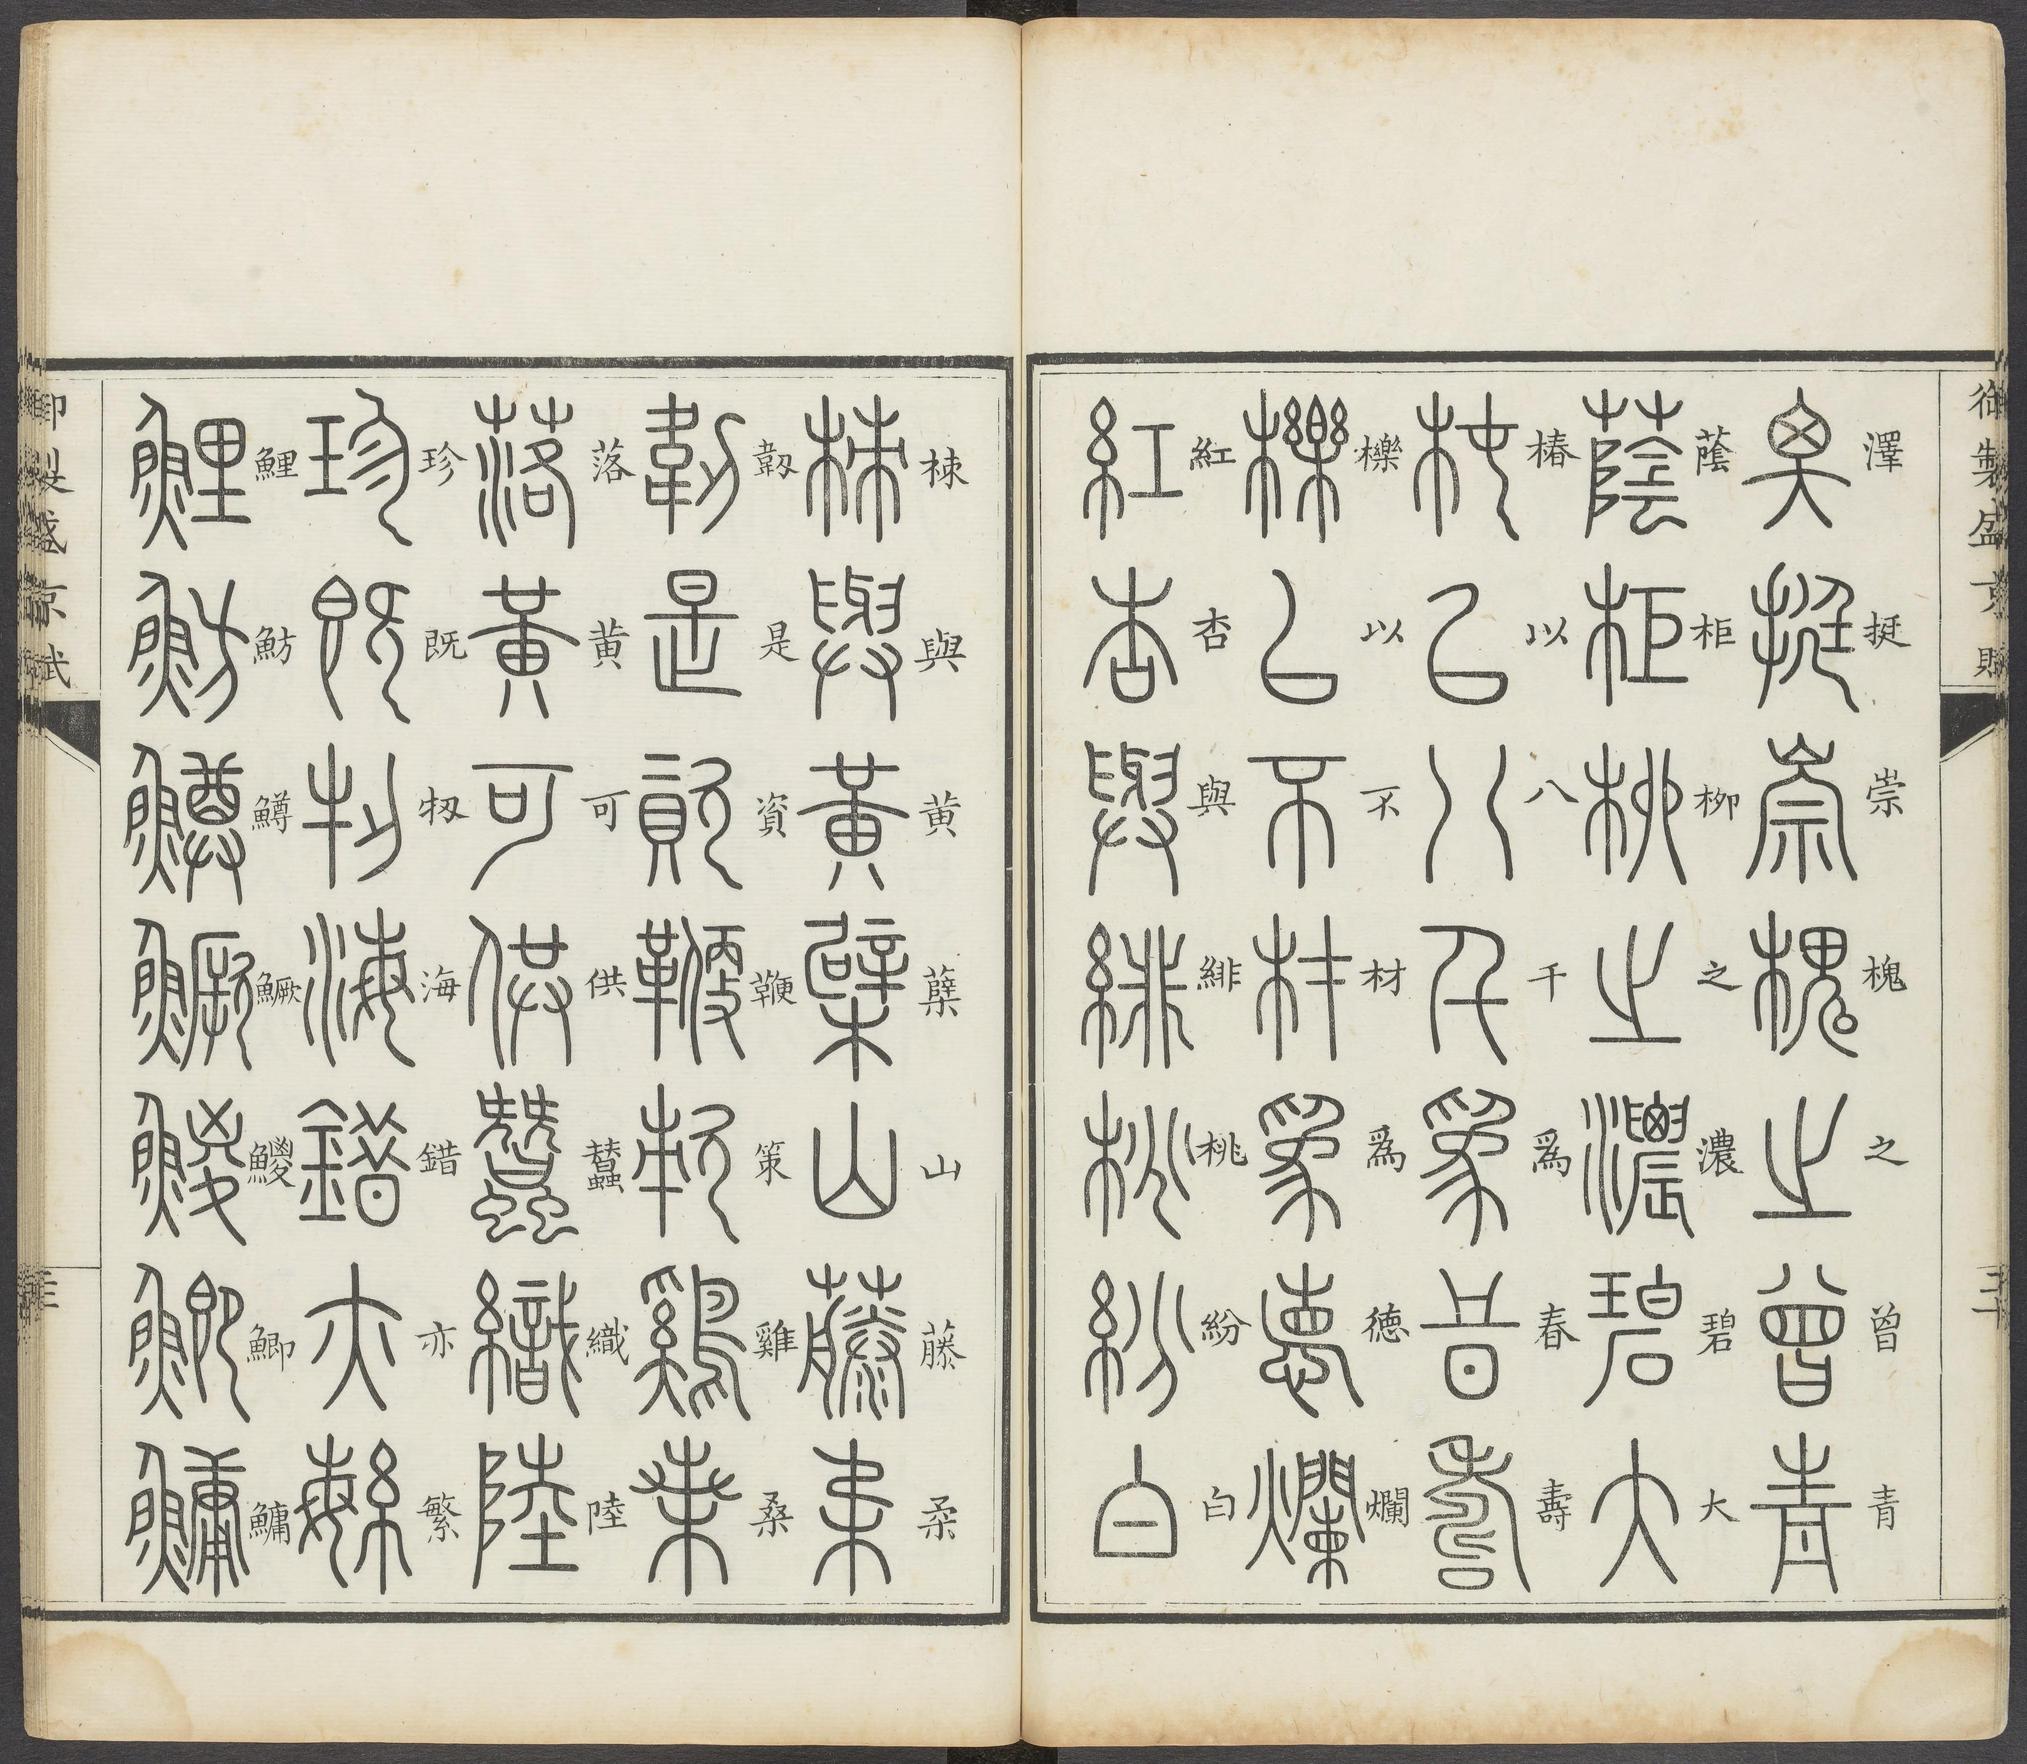 御製盛京賦
澤挺崇槐之曾青
蔭柜柳之濃碧大
椿以八千爲春壽
櫟以不材爲德爛
紅杏與緋桃紛白
梀與黄蘗山藤柔
韌是資鞭策雞桑
落黄可供蠶織陸
珍既牣海錯亦繁
鯉魴鱒鱖鯼鯽鱅
御製盛京賦